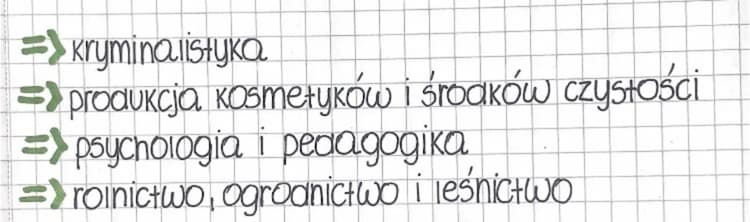 => kryminalistyka
=> produkcja kosmetyków i środków czystości
=> psychologia i pedagogika
=> rolnictwo, ogrodnictwo i leśnictwo